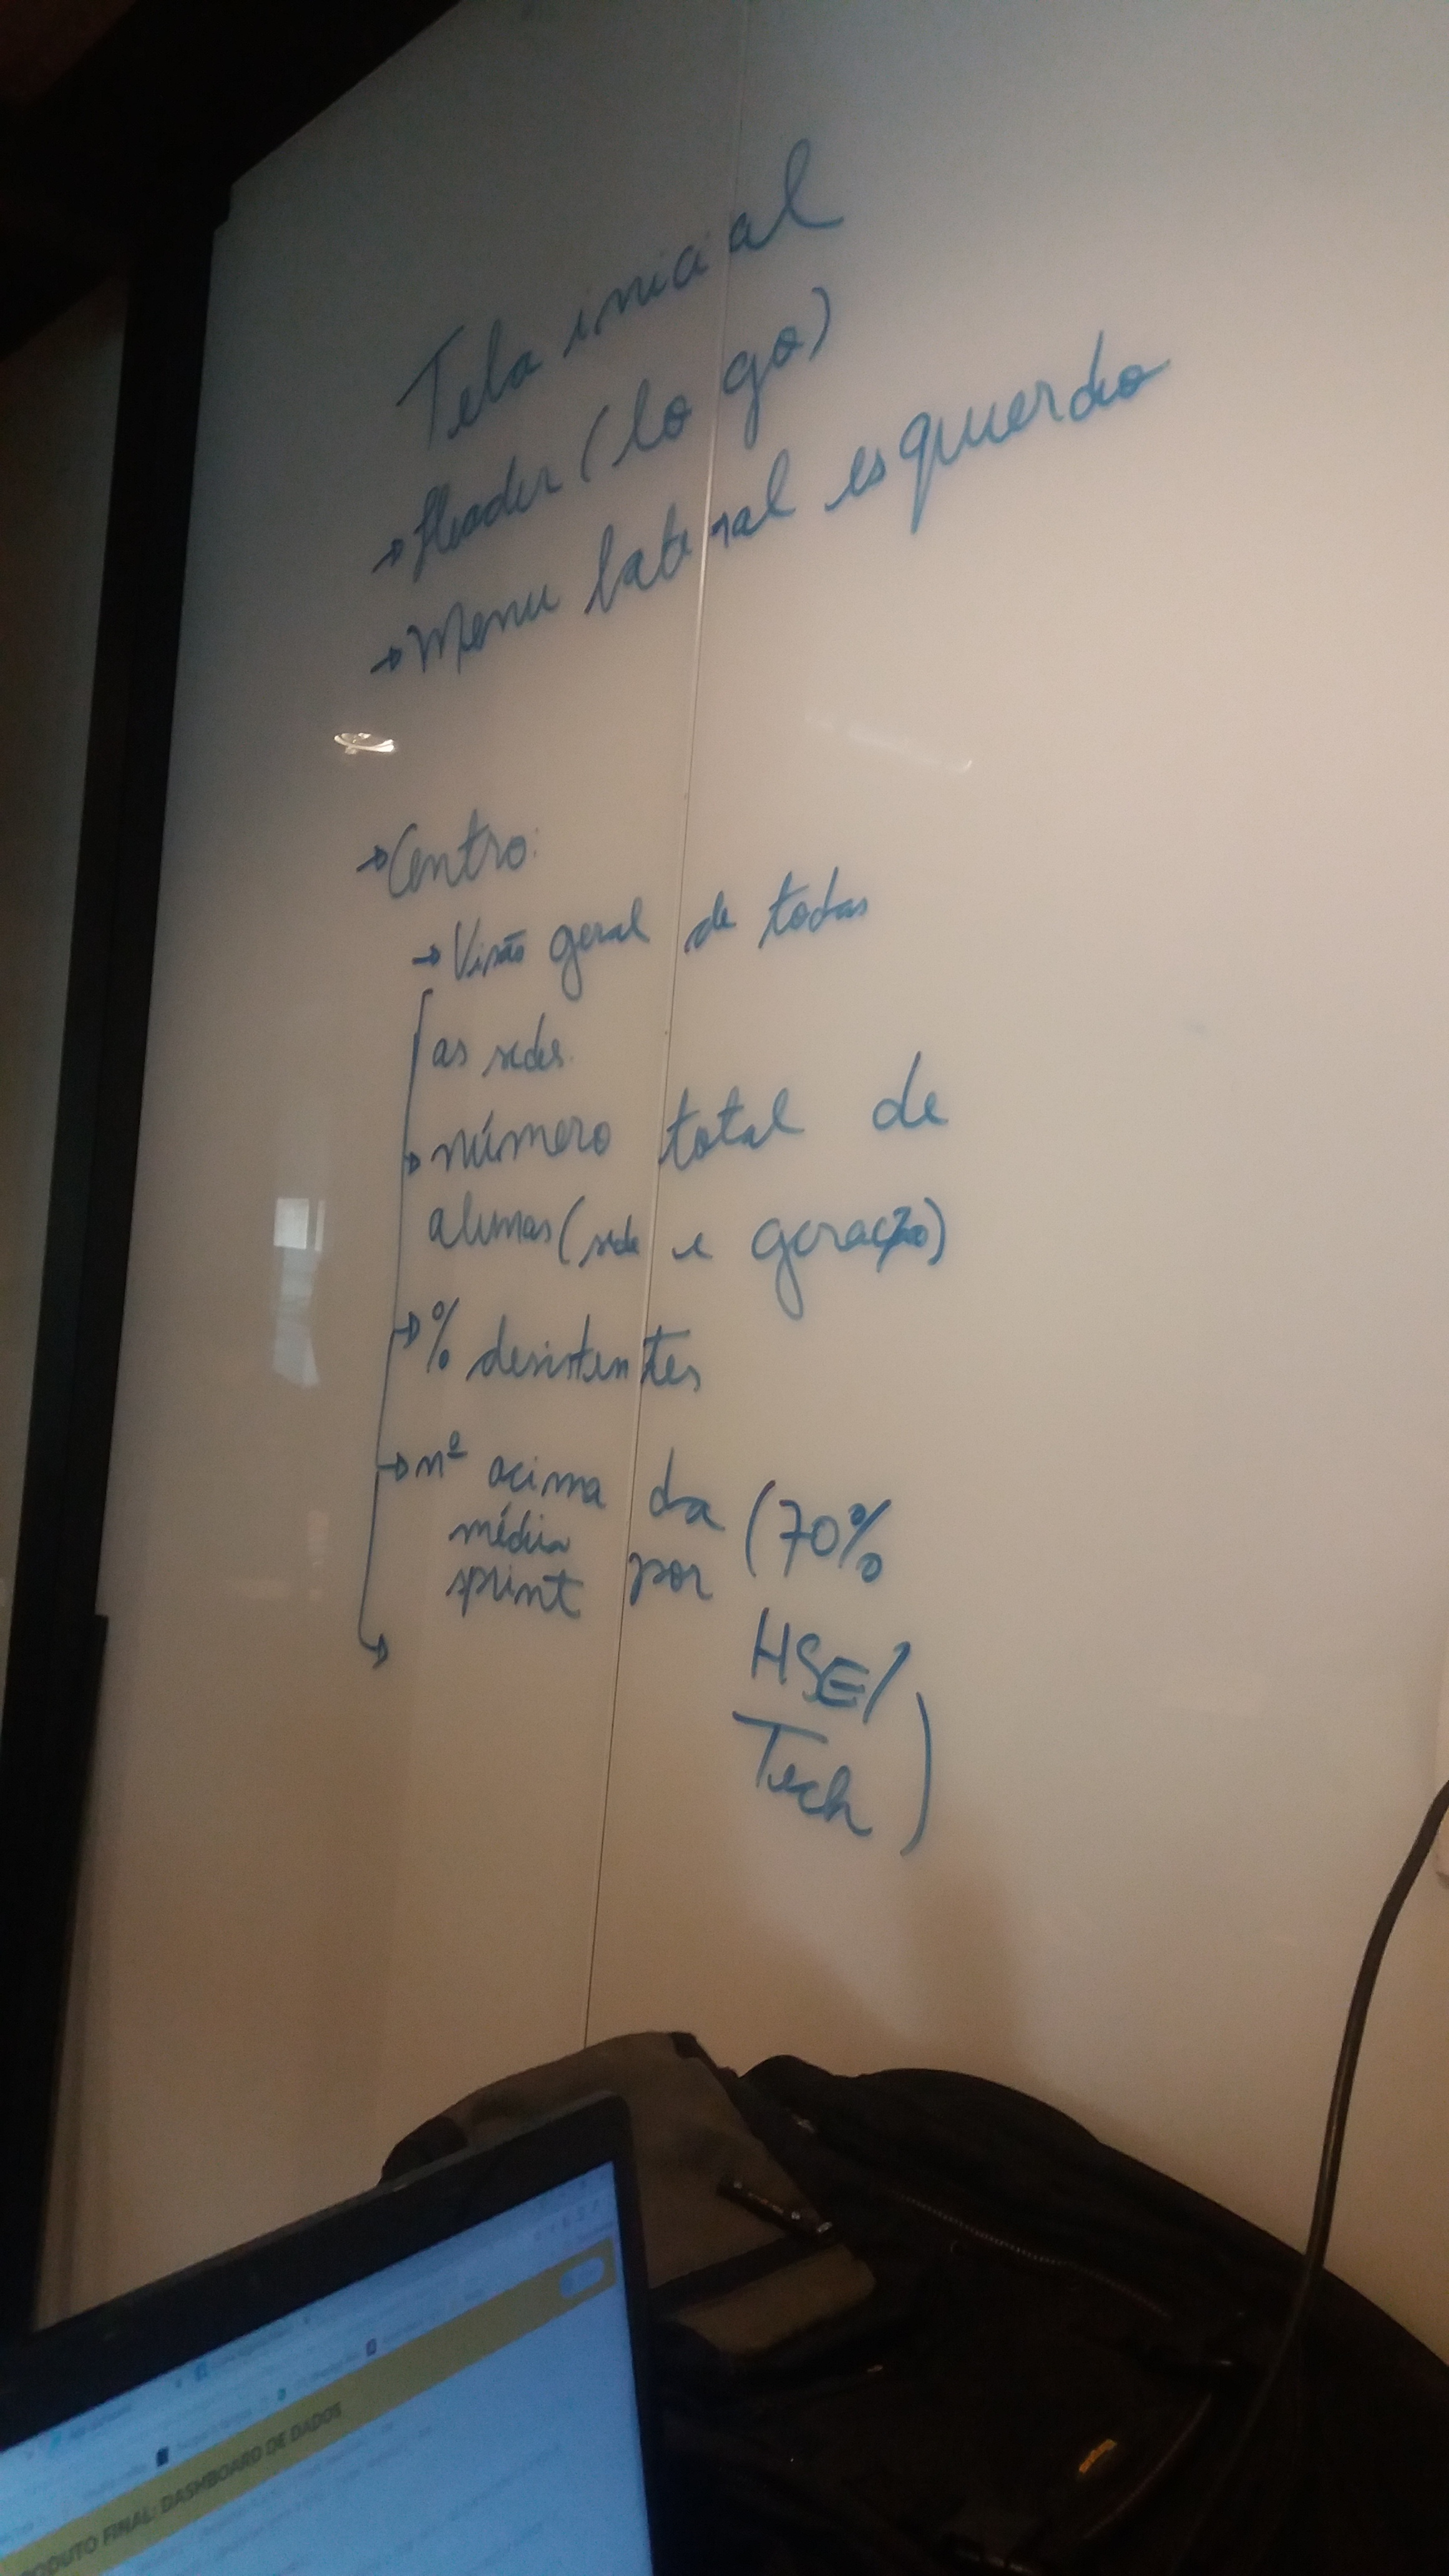 Tela inicial
→ Header (logo)
→ Menu lateral esquerdo
→ Centro:
→ Visão geral de todas
as sedes.
→ número total de
alunas (sede e geração)
→ % desistentes
→ nº acima da (70%
média
sprint por
HSE/
Tech)
ODUTO FINAL: DASHBOARD DE DADOS